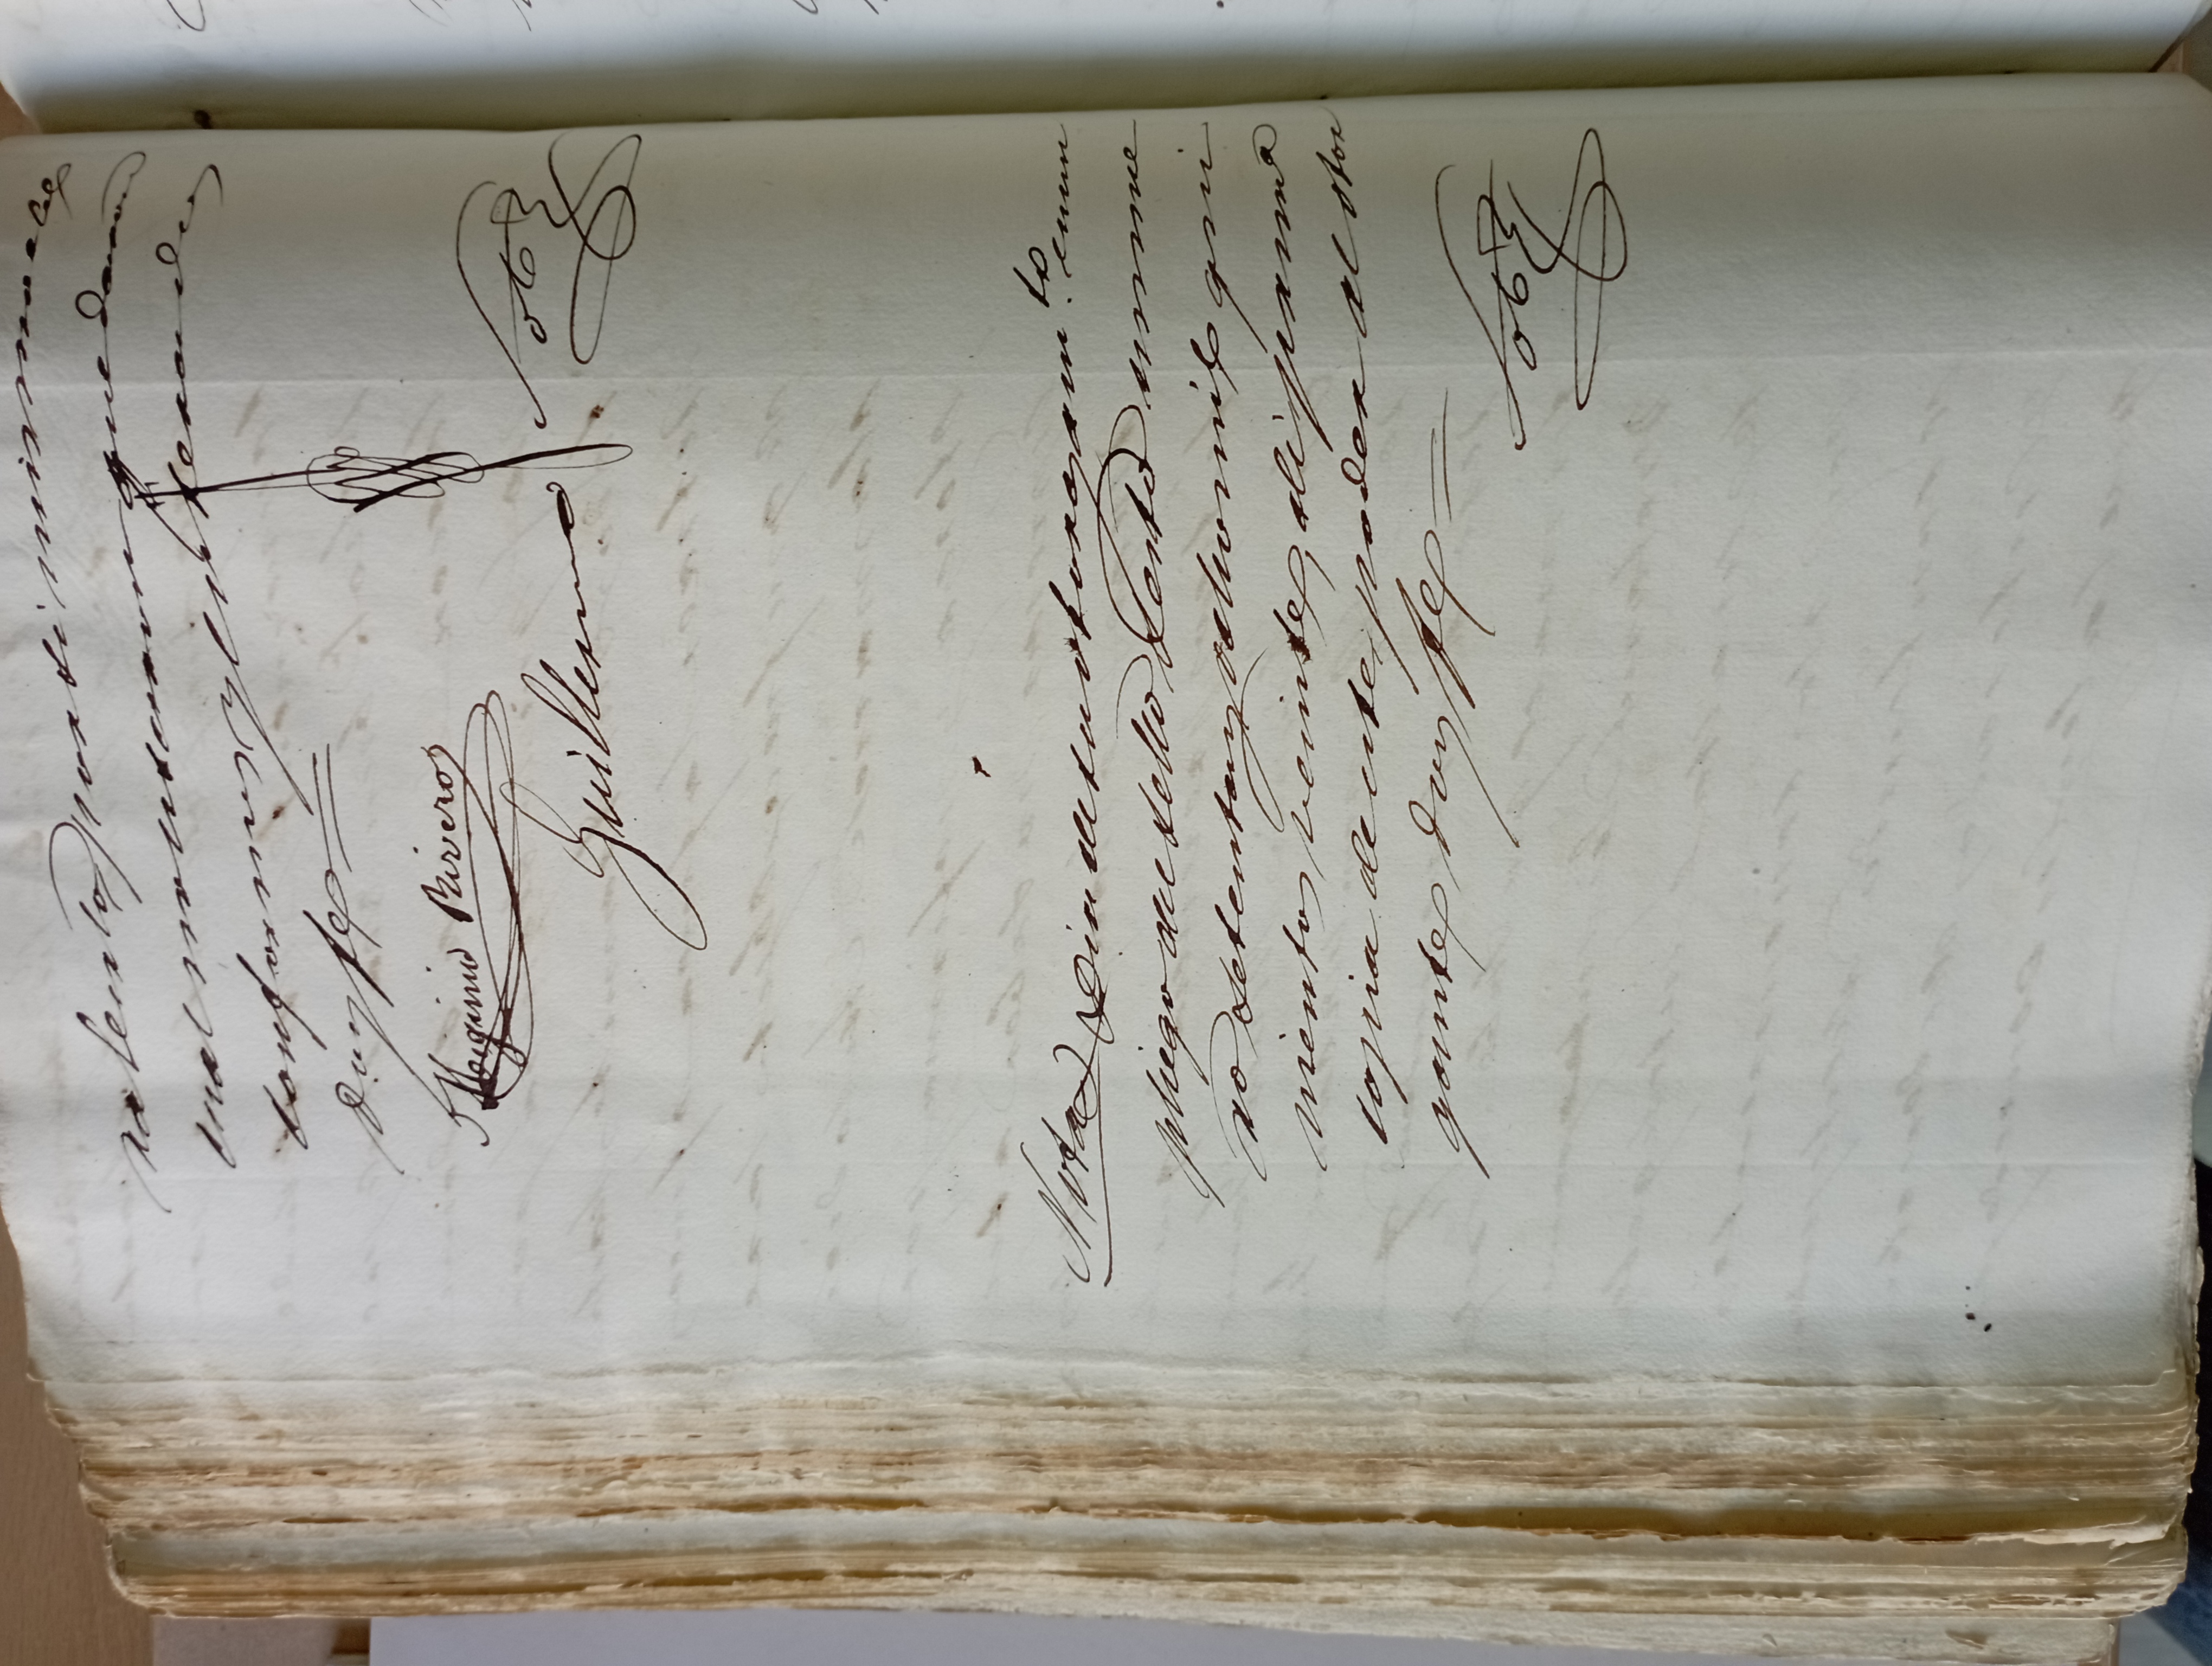 ra leerlo, por si mismo e lo
cual no usaron quedaron
conformes y enterados
doy fe =
Higinio Rivero
Guillermo Soto
Nota Dia de su otorgam.to en un
pliego del sello sesto nume
ro setenta y ocho mil qui
nientos veinte, di prim.a
copia de este poder al otor
gante doy fe =
Soto